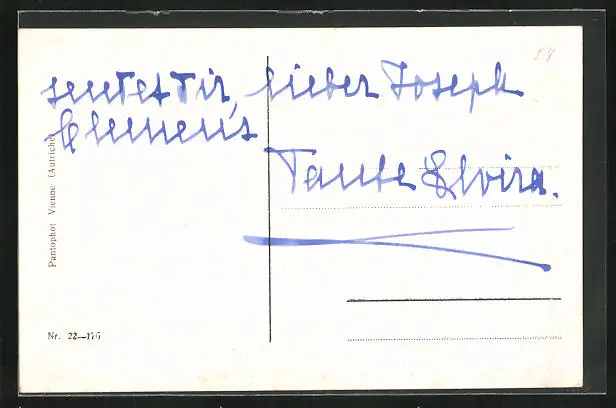 sendet Dir, lieber Joseph
Clemens
Tante Elvira.
Pantophot Vienne (Autriche)
Nr. 22—176